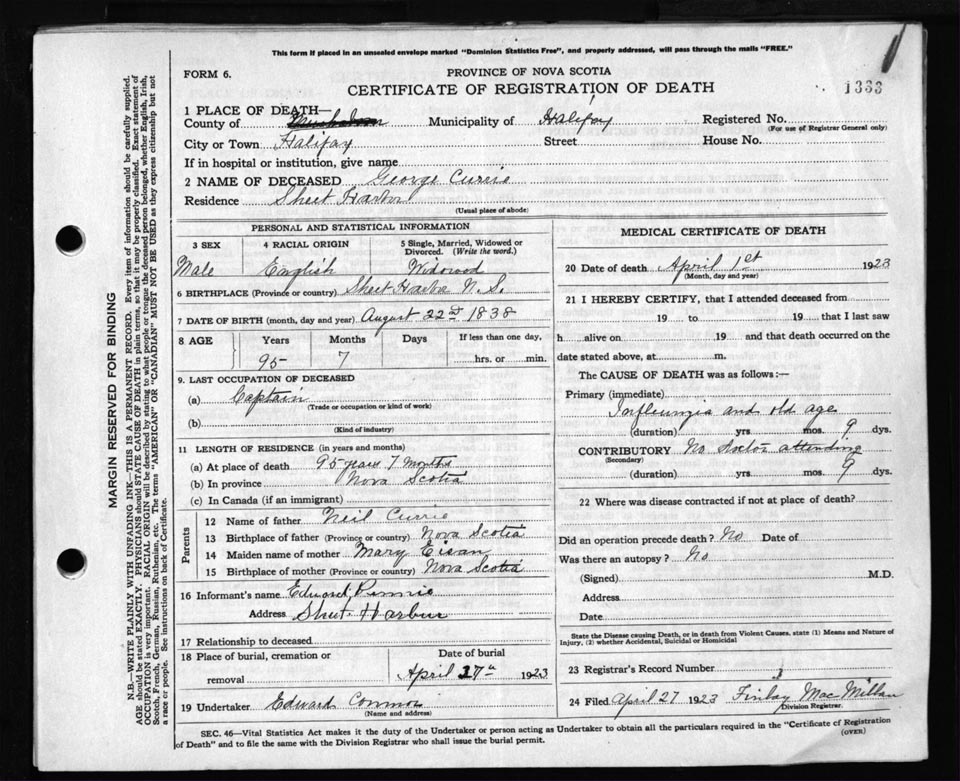 This form if placed in an unsealed envelope marked "Dominion Statistics Free", and properly addressed, will pass through the mails "FREE."
FORM 6.
PROVINCE OF NOVA SCOTIA
CERTIFICATE OF REGISTRATION OF DEATH
1333
1 PLACE OF DEATH—
County of Municipality of Halifax Registered No.
(For use of Registrar General only)
City or Town Halifax Street House No.
If in hospital or institution, give name
2 NAME OF DECEASED George Currie
Residence Sheet Harbor
(Usual place of abode)
PERSONAL AND STATISTICAL INFORMATION
3 SEX
4 RACIAL ORIGIN
5 Single, Married, Widowed or Divorced. (Write the word.)
Male English Widowed
6 BIRTHPLACE (Province or country) Sheet Harbor N.S.
7 DATE OF BIRTH (month, day and year) August 22nd 1838
8 AGE Years Months Days If less than one day,
95 7 hrs. or min.
9. LAST OCCUPATION OF DECEASED
(a) Captain
(Trade or occupation or kind of work)
(b)
(Kind of industry)
11 LENGTH OF RESIDENCE (in years and months)
(a) At place of death 95 years 7 Months
(b) In province Nova Scotia
(c) In Canada (if an immigrant)
Parents
12 Name of father Neil Currie
13 Birthplace of father (Province or country) Nova Scotia
14 Maiden name of mother Mary Eisan
15 Birthplace of mother (Province or country) Nova Scotia
16 Informant's name Edward
Address Sheet Harbur
17 Relationship to deceased
18 Place of burial, cremation or removal
Date of burial
April 17th 1923
19 Undertaker Edward Connor
(Name and address)
MEDICAL CERTIFICATE OF DEATH
20 Date of death April 1st 1923
(Month, day and year)
21 I HEREBY CERTIFY, that I attended deceased from
19 to 19 that I last saw
h alive on 19 and that death occurred on the
date stated above, at m.
The CAUSE OF DEATH was as follows:—
Primary (immediate)
Infleungia and old age
(duration) yrs. mos. 9 dys.
CONTRIBUTORY No Doctor attending
(Secondary)
(duration) yrs. mos. 9 dys.
22 Where was disease contracted if not at place of death?
Did an operation precede death? No Date of
Was there an autopsy? No
(Signed) M.D.
Address
Date
State the Disease causing Death, or in death from Violent Causes, state (1) Means and Nature of Injury, (2) whether Accidental, Suicidal or Homicidal
23 Registrar's Record Number
24 Filed April 27 1923 Finlay MacMillan
Division Registrar.
SEC. 46—Vital Statistics Act makes it the duty of the Undertaker or person acting as Undertaker to obtain all the particulars required in the "Certificate of Registration
of Death" and to file the same with the Division Registrar who shall issue the burial permit.
(OVER)
MARGIN RESERVED FOR BINDING
N.B.—WRITE PLAINLY WITH UNFADING INK—THIS IS A PERMANENT RECORD. Every item of information should be carefully supplied.
AGE should be stated EXACTLY. PHYSICIANS should STATE CAUSE OF DEATH in plain terms, so that it may be properly classified. Exact statement of
OCCUPATION is very important. RACIAL ORIGIN will be described by stating to what people or tongue the deceased person belonged, whether English, Irish,
Scotch, French, German, Russian, Ruthenian, etc. The terms "AMERICAN" OR "CANADIAN" MUST NOT BE USED as they express citizenship but not
a race or people. See instructions on back of Certificate.